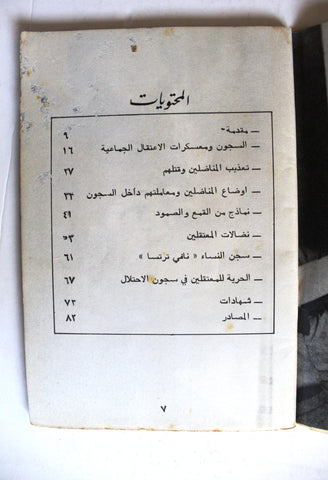 المحتويات
ــ مقدمة ٩
ــ السجون ومعسكرات الاعتقال الجماعية ١٦
ــ تعذيب المناضلين وقتلهم ٢٧
ــ اوضاع المناضلين ومعاملتهم داخل السجون ٣٣
ــ نماذج من القمع والصمود ٤١
ــ نضالات المعتقلين ٥٣
ــ سجن النساء « نافي ترتسا » ٦١
ــ الحرية للمعتقلين في سجون الاحتلال ٦٧
ــ شهادات ٧٢
ــ المصادر ٨٢
٧